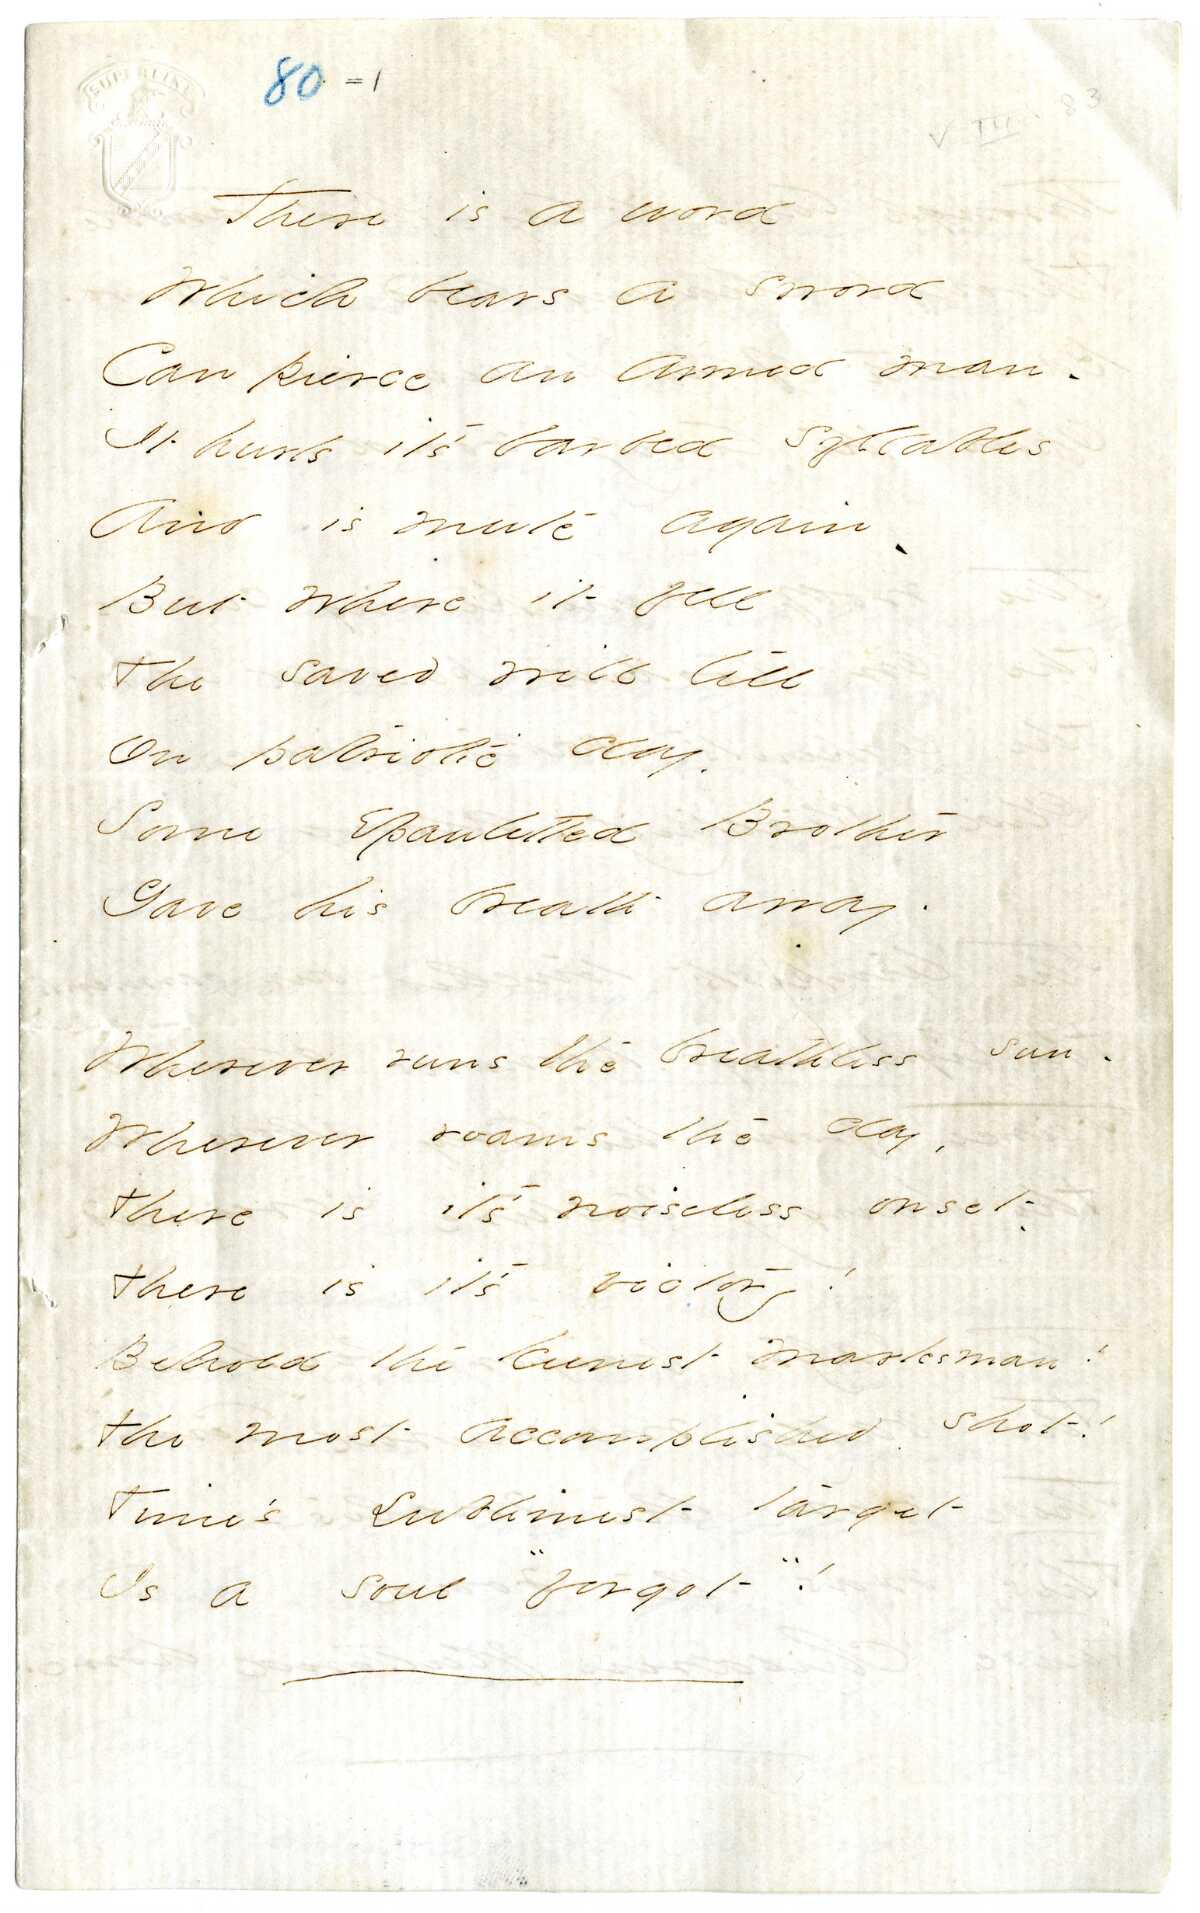 SUPERFINE
80 = 1
V III 83
There is a word
Which bears a sword
Can pierce an armed man.
It hurls it's barbed syllables
And is mute again.
But where it fell
the saved will tell
On patriotic day.
Some Epauletted Brother
Gave his breath away.
Wherever runs the breathless sun.
Wherever roams the day,
there is it's noiseless onset.
there is it's victory!
Behold the keenest marksman!
the most accomplished shot!
Time's sublimest target
Is a soul "forgot"!